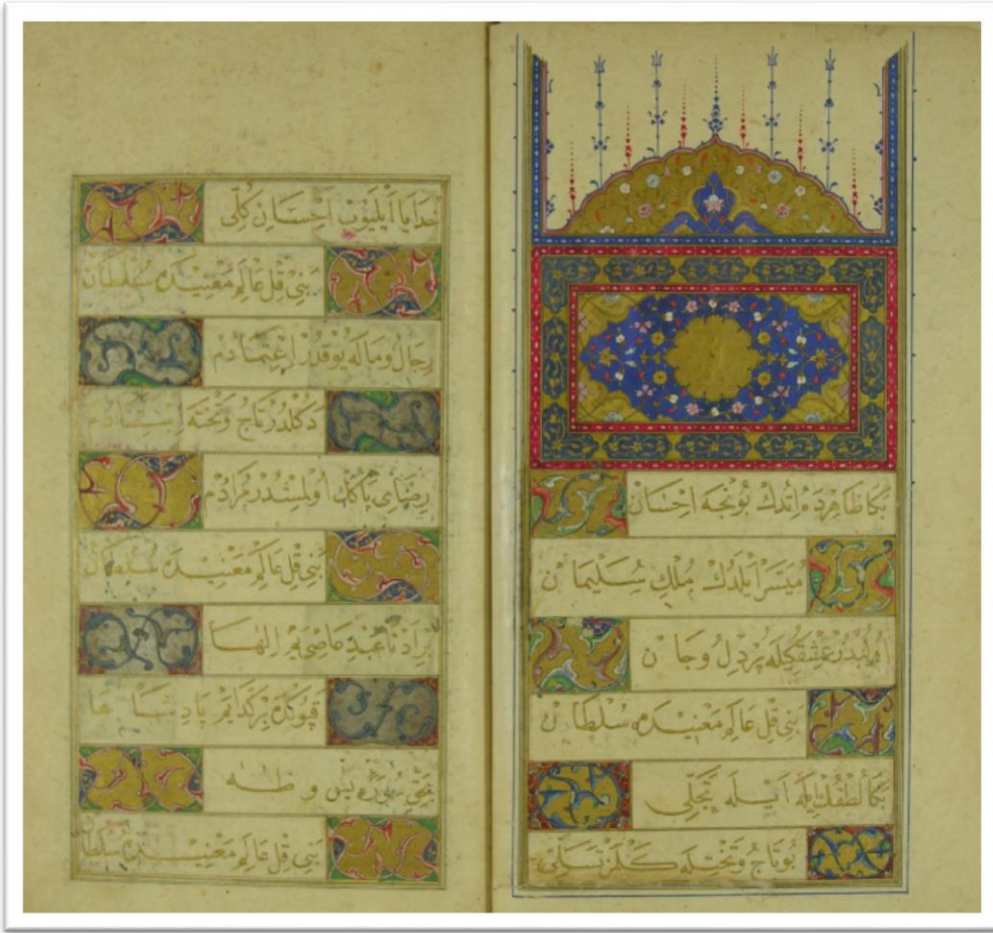 بَكَا ظَاهِرْدَه اِتْدِڭ بُونْجَه اِحْسَان
مُيَسَّرْ اَيْلَدِڭ مُلْكِ سُلَيْمَان
اُولُبْدُرْ عَشْقِڭِلَه پُرْ دِل وُ جَان
بَنِى قِلْ عَالَمِ مَعْنِيدَه سُلْطَان
بَكَا لُطْفُڭ اِيلَه اَيْلَه تَجَلِّى
بُو تَاجُ وُ تَخْتِلَه كَلْمَزْ تَسَلِّى
خدايا اَيْلَيُوبْ اِحْسَانِ كُلِّى
بَنِى قِلْ عَالَمِ مَعْنِيدَه سُلْطَان
رِجَالُ وُ مَالَه يُوقْدُرْ اِعْتِمَادُمْ
دَكُلْدُرْ تَاجُ وُ تَخْتَه اِسْتِنَادُمْ
رِضَاىِ پَاكِڭ اُولْمِشْدُرْ مُرَادُمْ
بَنِى قِلْ عَالَمِ مَعْنِيدَه سُلْطَان
مُرَادِى عَبْدِ عَاصِى يَمْ اِلٰهَا
قَپُوڭْدَه بِرْ كَدَايَمْ پَادِشَاهَا
بِحَقِّ سُورَهٔ يٰس و طٰه
بَنِى قِلْ عَالَمِ مَعْنِيدَه سُلْطَان